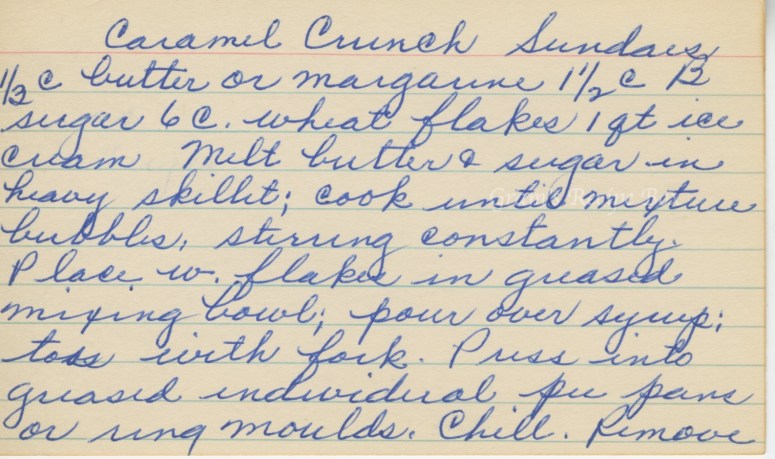 Caramel Crunch Sundaes
1/3 c butter or margarine 1 1/2 c B
sugar 6 c. wheat flakes 1 qt ice
cream Melt butter & sugar in
heavy skillet; cook until mixture
bubbles, stirring constantly.
Place w. flakes in greased
mixing bowl; pour over syrup;
toss with fork. Press into
greased individual pie pans
or ring moulds. Chill. Remove